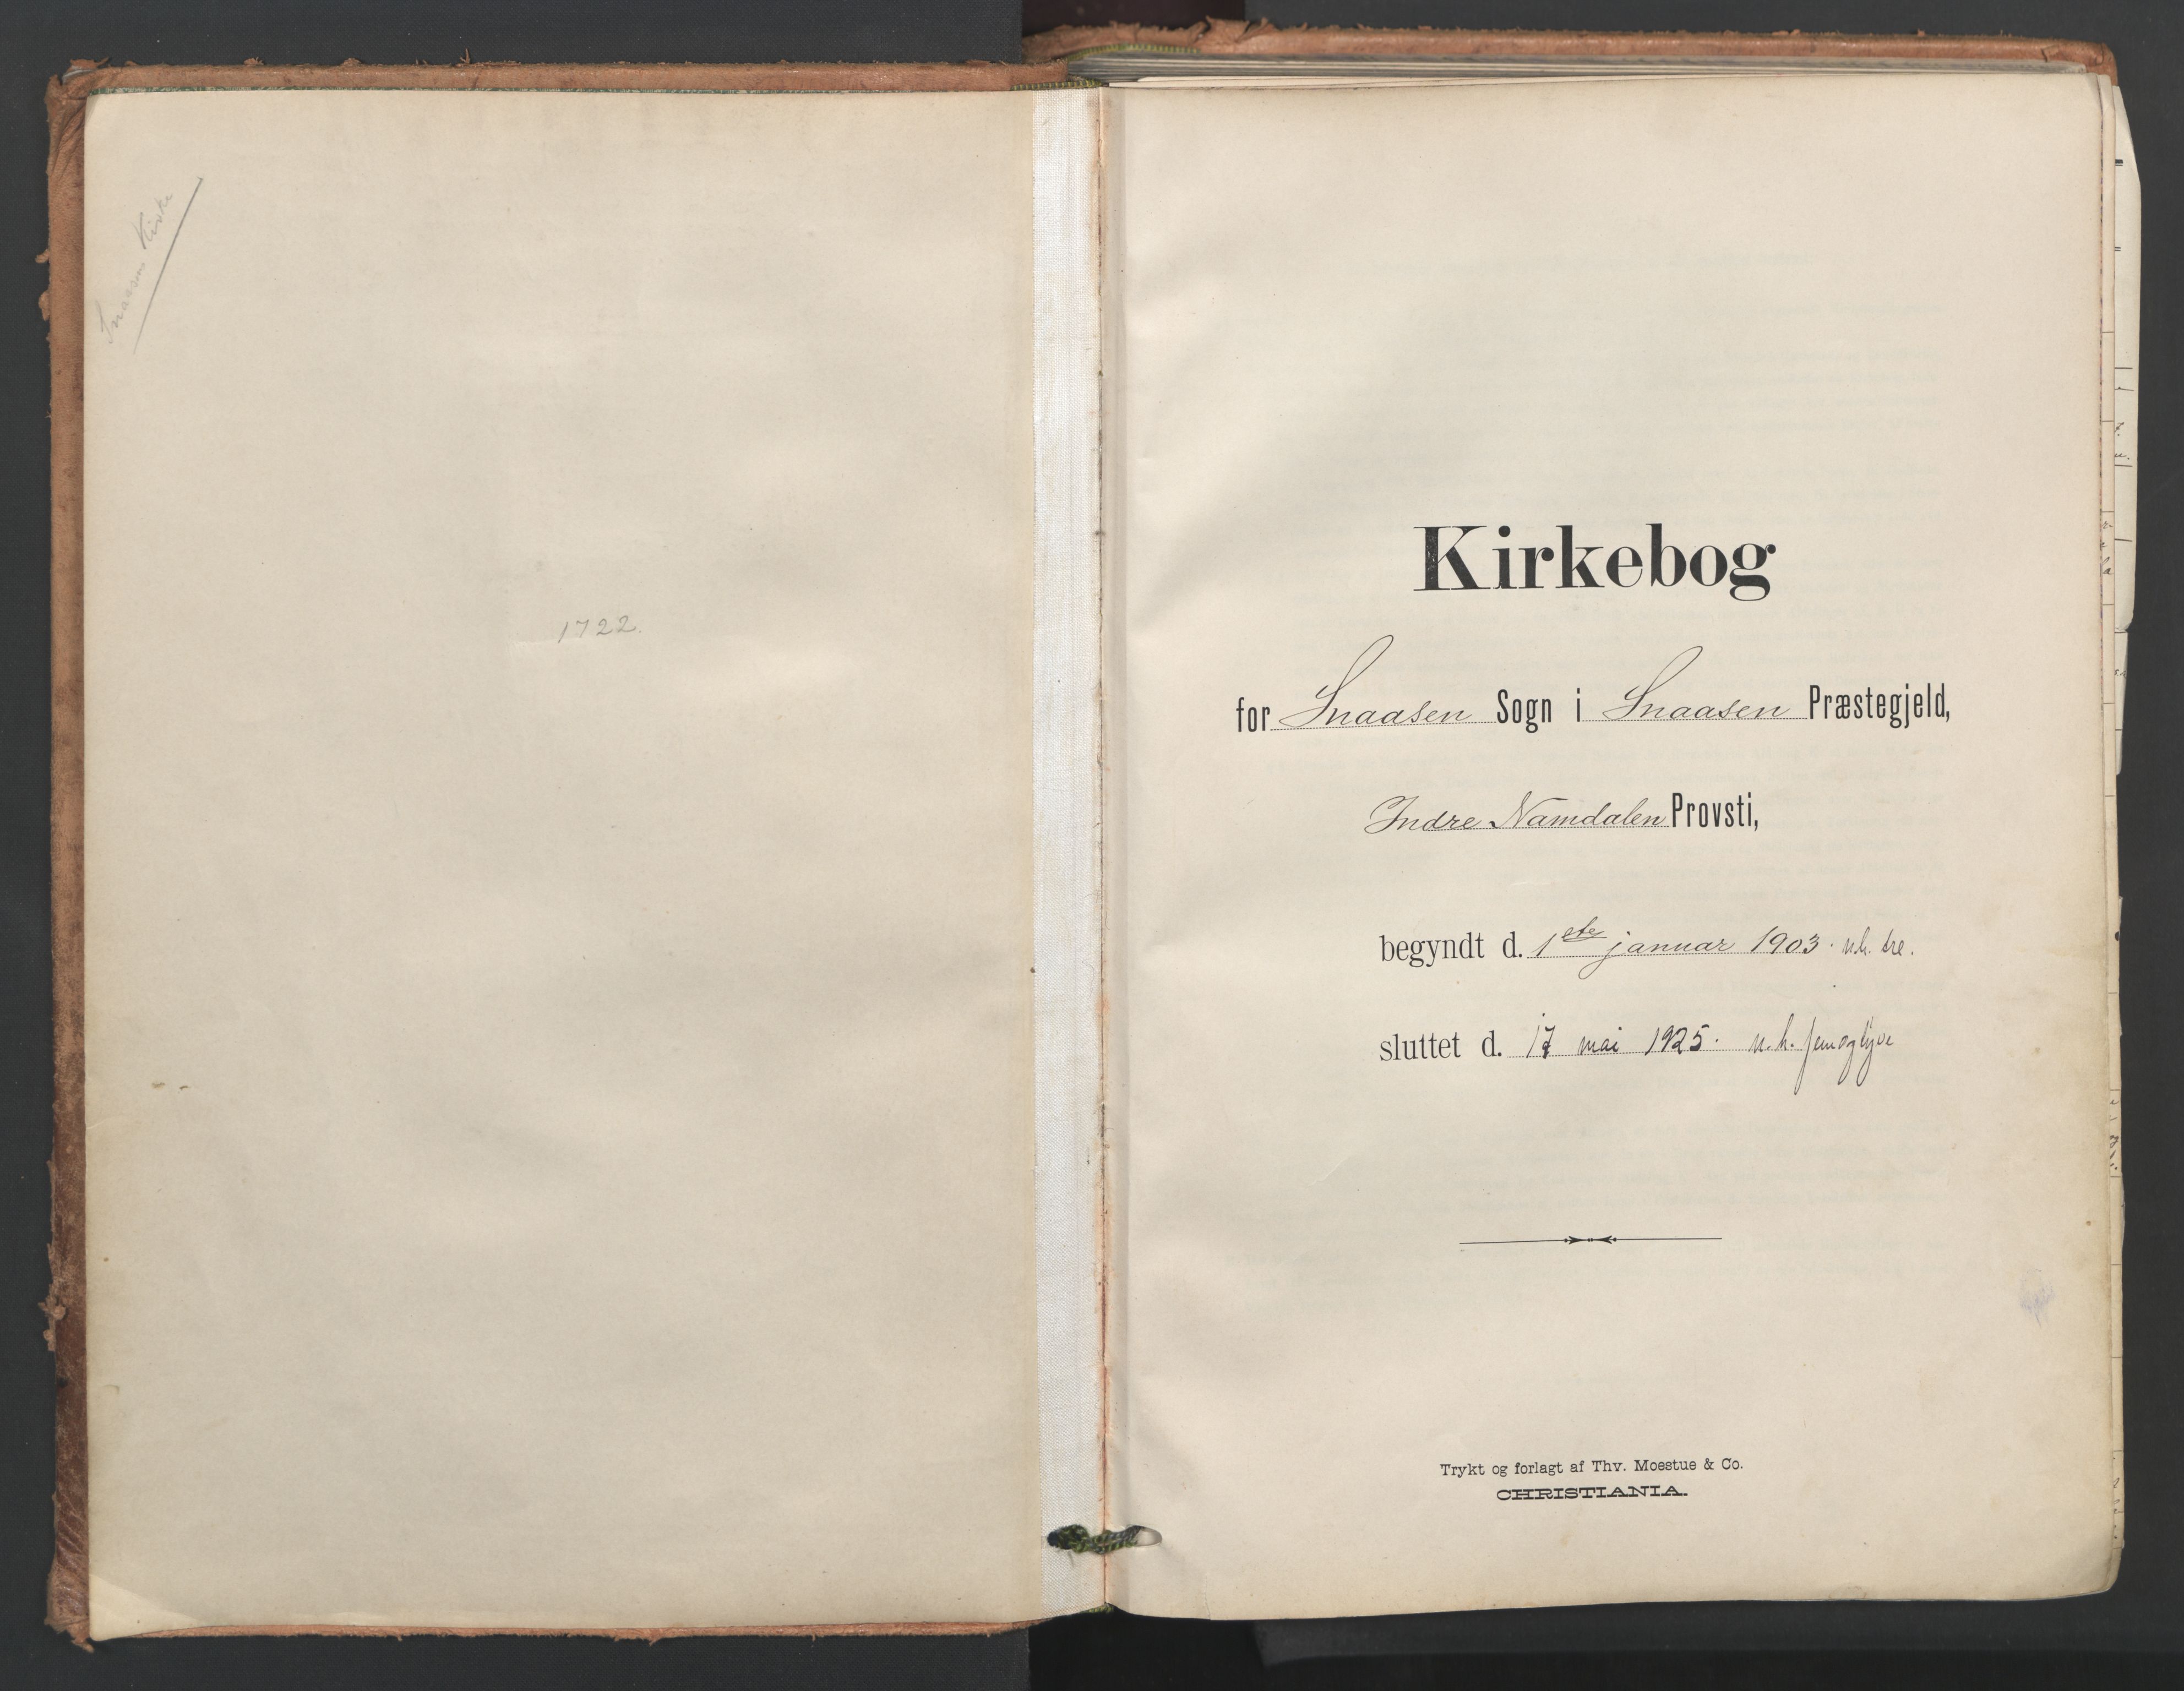 Snaasens Kirke
1722.
Kirkebog
for Snaasen Sogn i Snaasen Præstegjeld,
Indre Namdalen Provsti,
begyndt d. 1ste januar 1903. n.h. tre.
sluttet d. 17 mai 1925. n.h. femogtyve
Trykt og forlagt af Thv. Moestue & Co.
CHRISTIANIA.